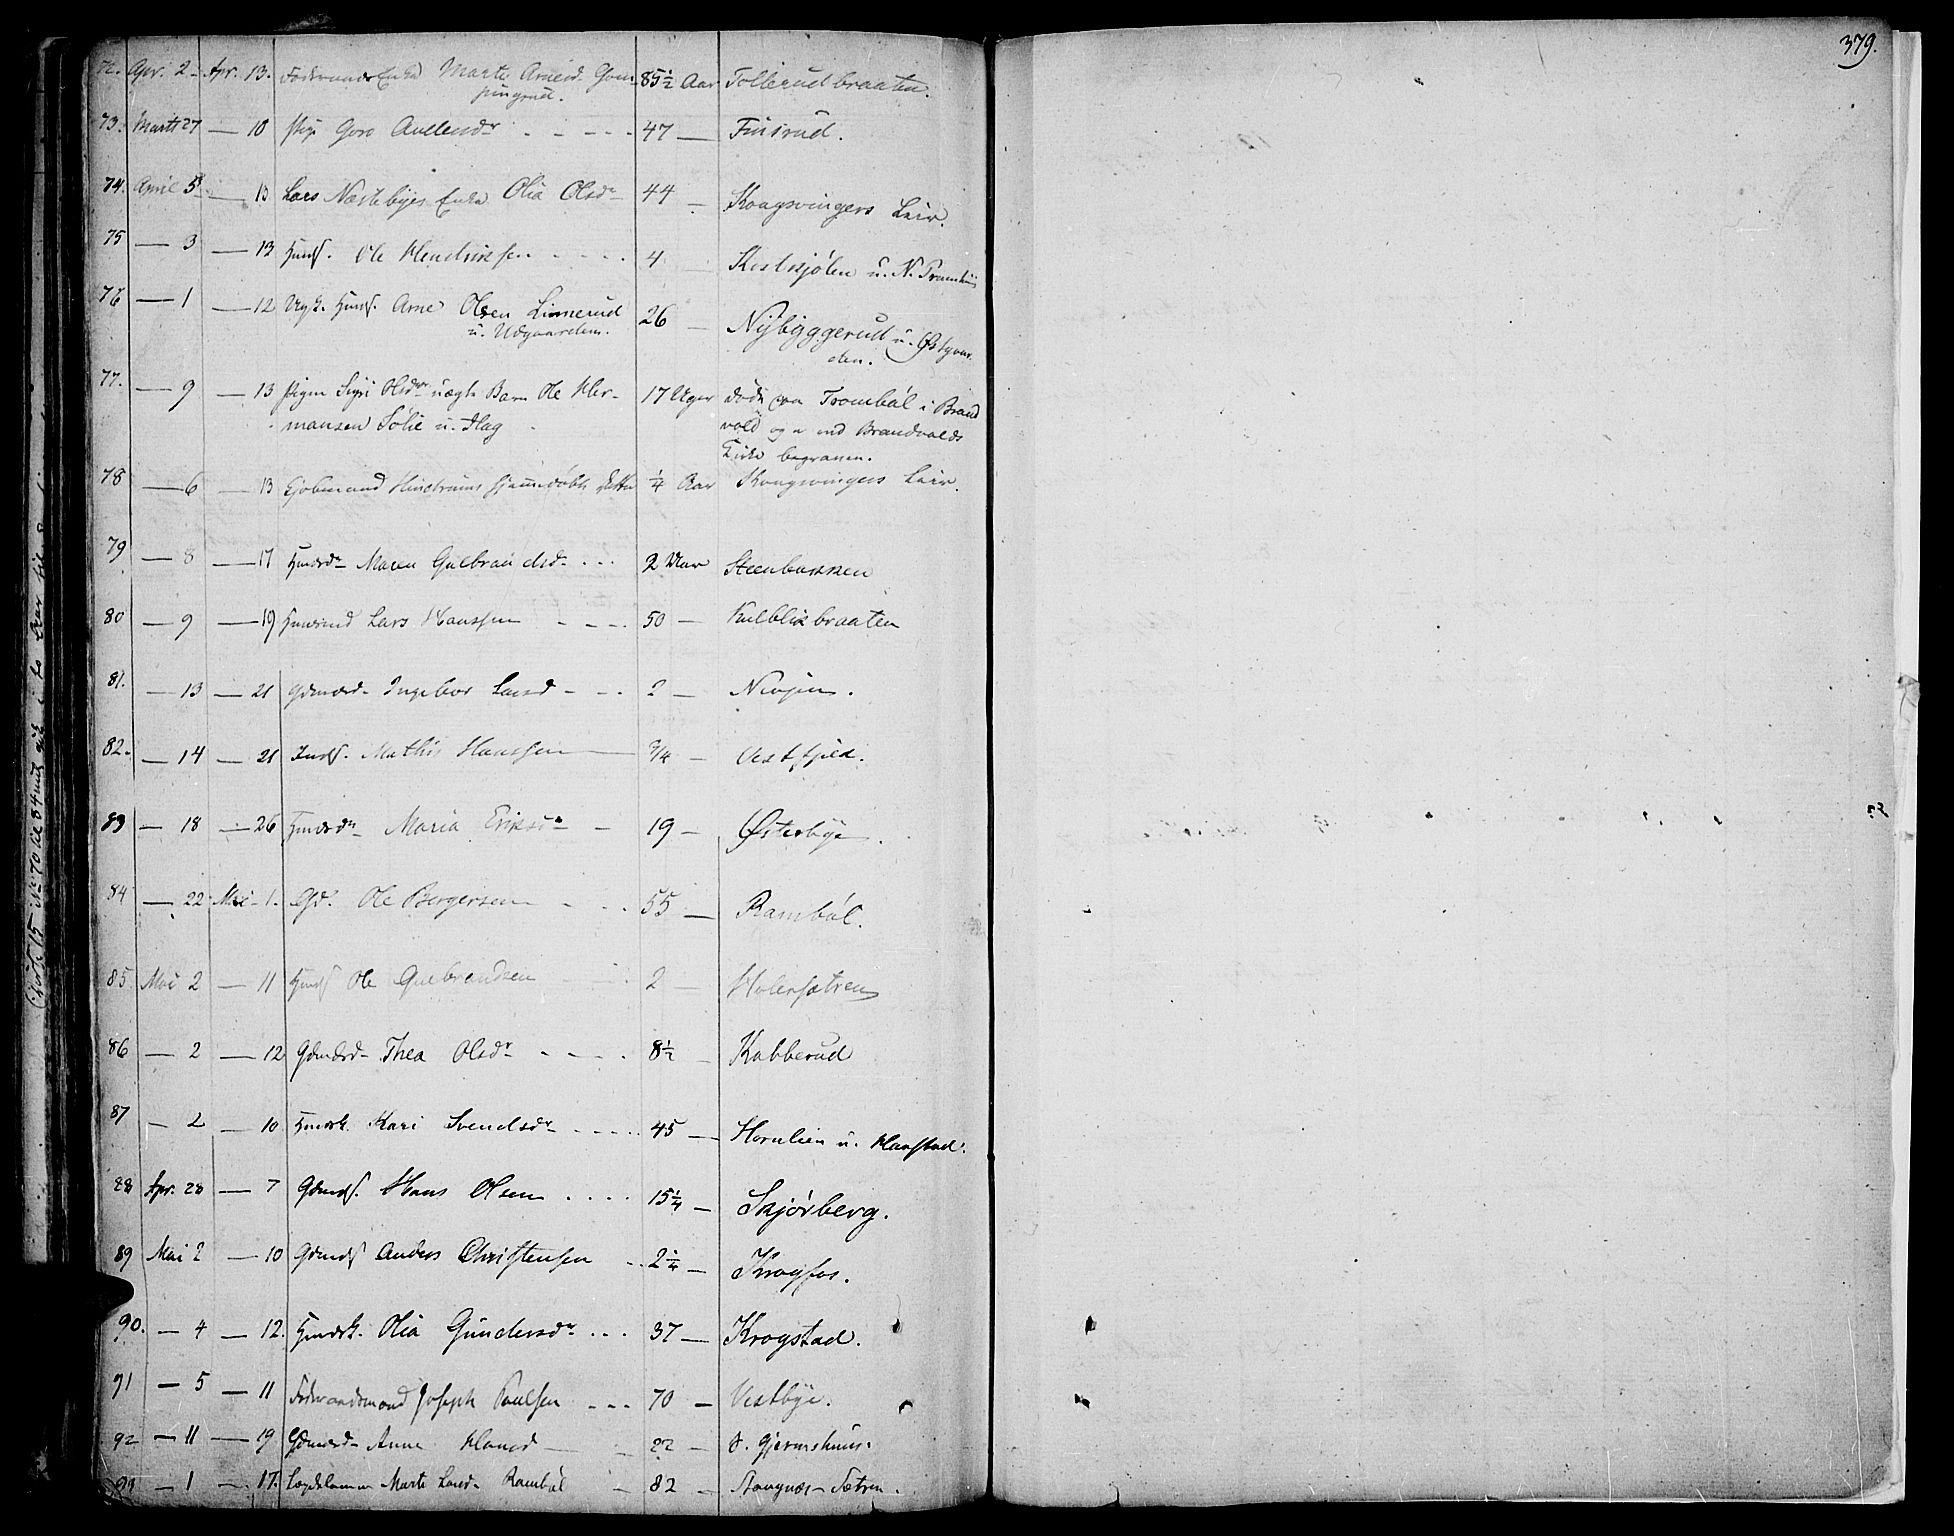 379.
72. Apr. 2 - Apr. 13. Foderaads Enke Marte Arnesd. Gom-
pingrud. 85½ Aar Tollerudbraaten.
73. Marts 27 — 10 Pige Goro Aullensdr - - - - 47 — Finsrud.
74. April 5 — 13 Lars Næstebyes Enke Olia Olsdr 44 — Kongsvingers Leir.
75 — 3 — 13 Huusf. Ole Hendriksen - - - - 4 Kostskjølen u. N.
76 — 1 — 12 Ugt. Huusf. Arne Olsen Linnerud
u. Udgaarden. 26 — Nybyggerud u. Østgaar
den.
77. — 9 — 13 Pigen Sigri Olsdr uægte Barn Ole Her-
mansen Solie u. Hag 17 Uger døde paa Trombøl i Brand
vold og ved Brandvolds
Kirke begraven.
78 — 6 — 13 hjemmedøbte Datter ¼ Aar Kongsvingers Leir.
79 — 8 — 17 Huusmd- Maren Gulbrandsd- - - - 2 Aar Steenbakken
80 — 9 — 19 Huusmd Lars Hanssen - - - 50 — Kulblikbraaten
81. — 13 — 21 Gdmænd- Ingebor Larsd - - - 2 —
82. — 14 — 21 Inds. Mathis Hanssen ¾ — Vestfjeld.
83 — 18 — 26 Maria Eriksdr — 19 — Østerbye.
84 — 22 Mai - 1. Gd. Ole Bergersen - - - 55 — Rambøl.
85 Mai 2 — 11 Huusf Ole Gulbrandsen — 2 — Holersætren
86 — 2 — 12 Gdmænd- Thea Olsdr - - - - 8½ — Kabberud
87 — 2 — 10 Huusk. Kari Svendsdr - - - - 45 — Hornlien u. Harstad.
88 Apr. 28 — 7 Gdmds. Hans Olsen - - - - 15¼ — Skjørberg.
89 Mai 2 — 10 Gdmds Anders Christensen - - 2¼ — Krogfos.
90. — 4 — 12. Huusk. Olia Gundersdr - - - 37 — Krogstad.
91 — 5 — 11 Foderaadsmand Joseph Paulsen - - - 70 — Vestbye.
92 — 11 — 19 Gdmænd- Anne Hansd — 22 — S. Gjermshuus.
93 — 1 — 17. Lægdslemm Marte Larsd- Rambøl — 82 — Sætren.